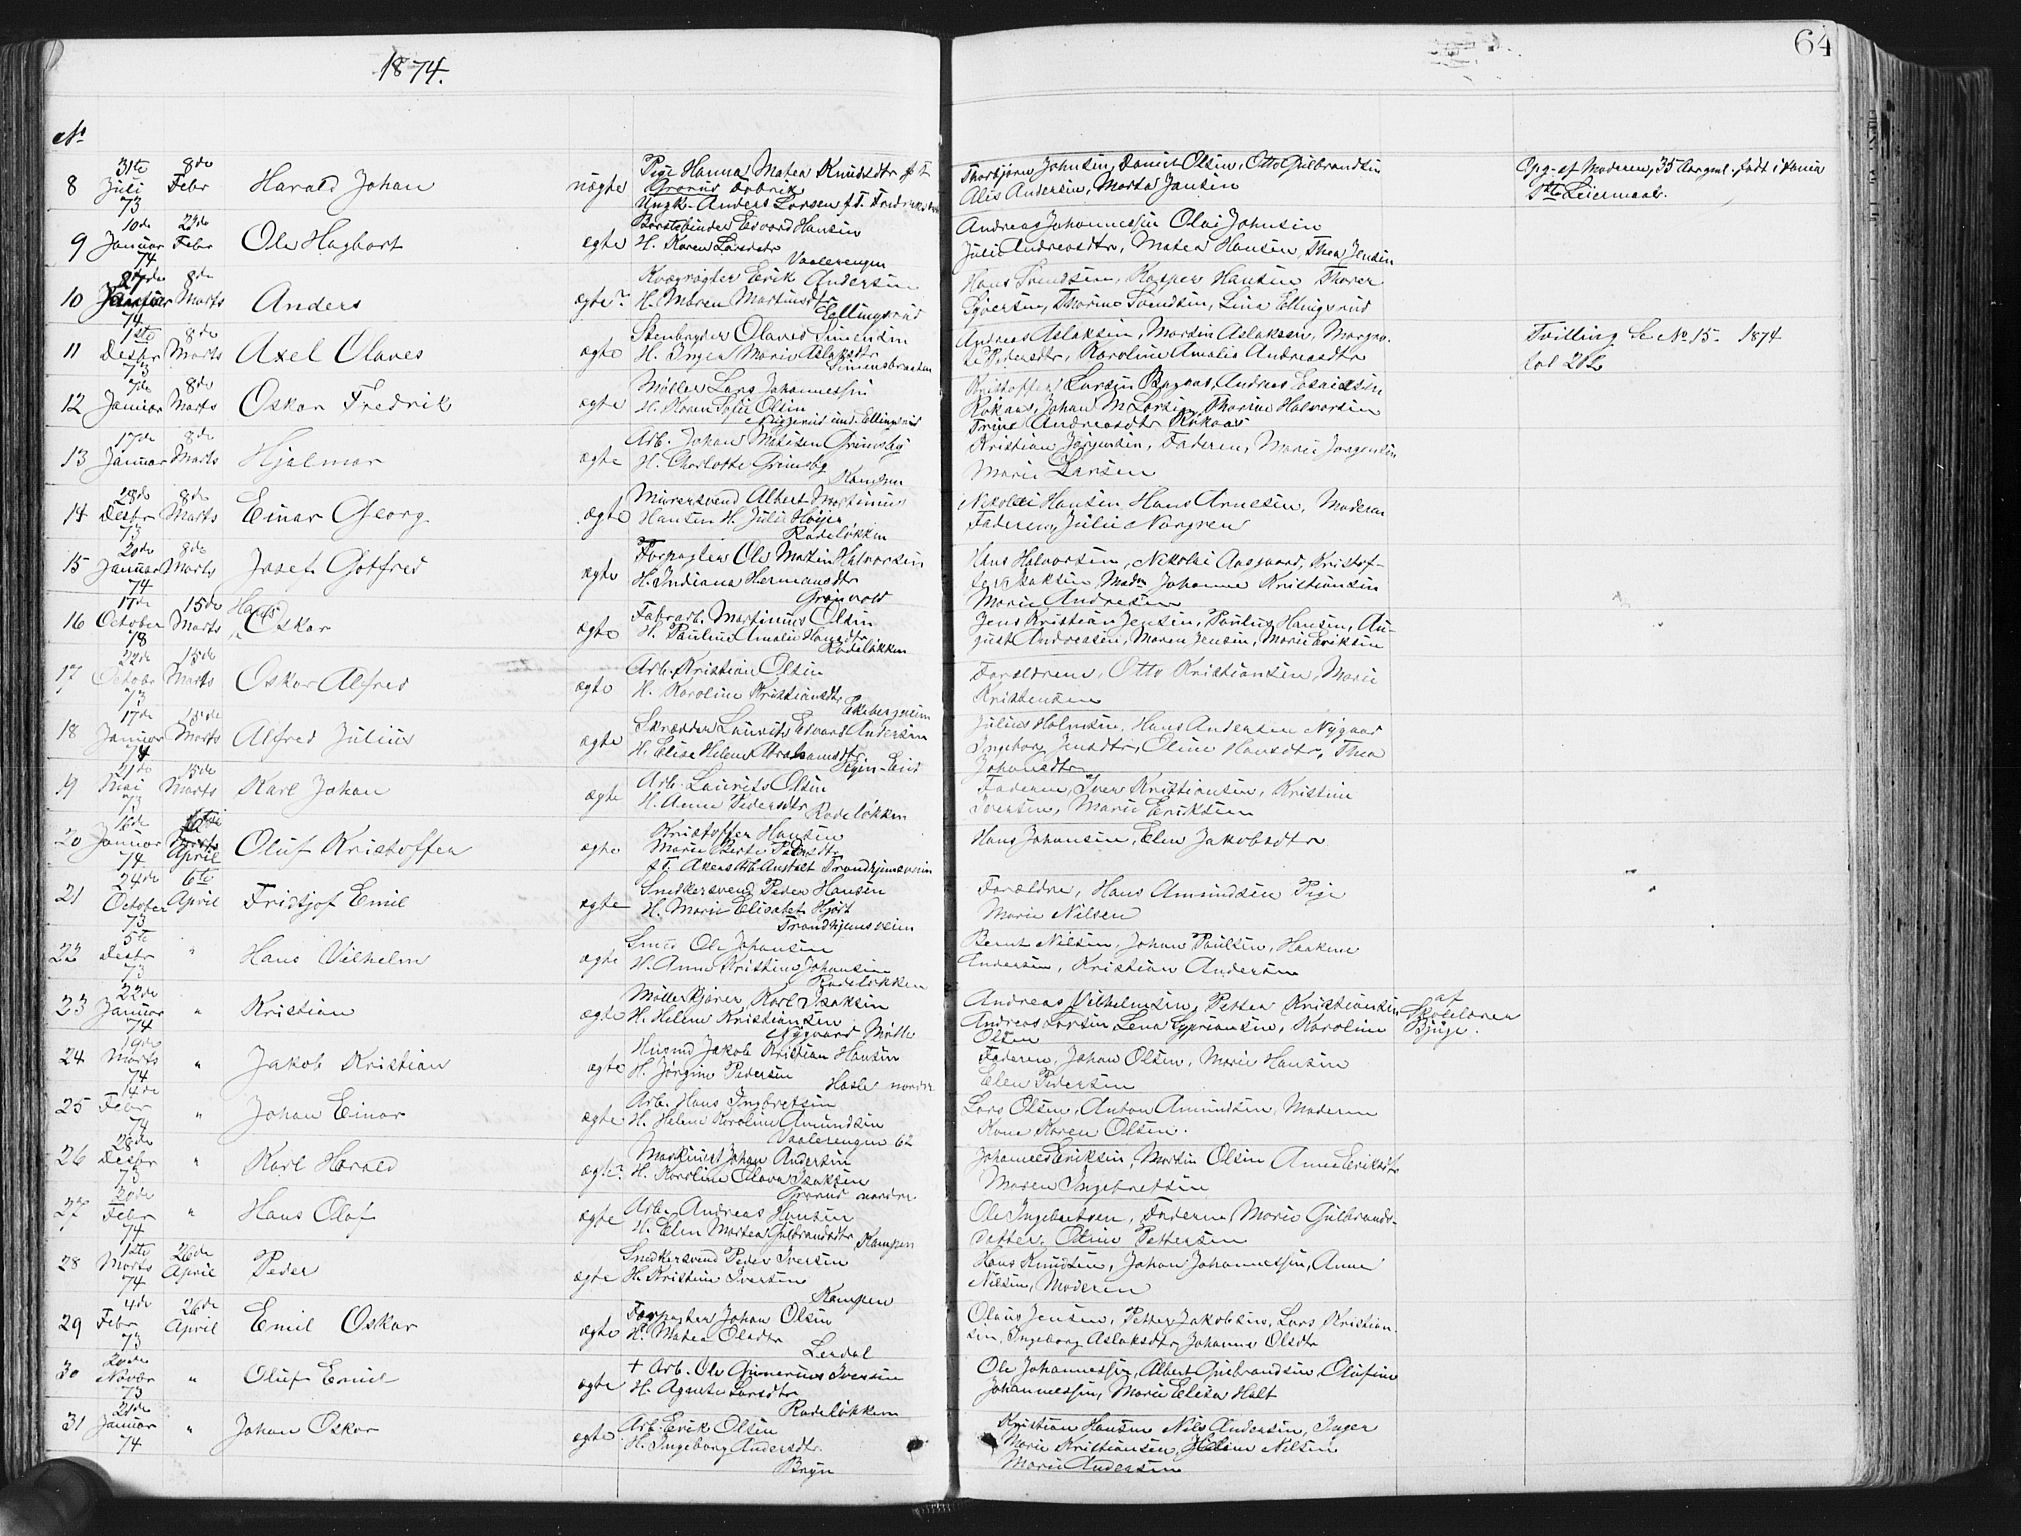 1874.
64
No
31te 8de Pige Hanna Matea Knudsdtr f. T. Thorbjørn Johnsen, Daniel Olsen, Otto Gulbrandsen Opg. af Moderen, 35 Aar gml. født i Xania
8 Juli Febr Harald Johan uægte Grorud Fabrik Alis Andersen, Marta Jansen 1ste Leiermaal.
73 Ungk. Anders Larsen f. T.
10de 22de Børstebinder Edvard Hansen Andreas Johannessen Olai Johnsen
9 Januar Febr Ole Hagbart ægte H. Karen Larsdtr Julie Andreasdtr, Matea Hansen, Thea Jensen
74 Vaalerengen
27de 8de Kvægrøgter Erik Andersen Hans Svendsen, Kasper Hansen Thorer
10 Januar Marts Anders ægte? H. Maren Martinusdtr Syversen, Thorine Svendsen, Lina Ellingsrud
74 Ellingsrud
1ste 8de Stenbryder Olaves Simensen Andreas Aslaksen, Martin Aslaksen, Margre-
11 Desbr Marts Axel Olaves ægte H. Inger Marie Aslaksdtr te Pedersdtr, Karoline Amalie Andreasdtr Tvilling Se No 15. 1874
73 Simensbraaten fol 262
7de 8de Møller Lars Johannessen Kristoffer Larsen Bagaas, Andreas Esaiassen
12 Januar Marts Oskar Fredrik ægte H. Karen Sofie Olsen Røkaas, Johan M Larsen, Thorine Halvorsen
Ellingsrud Trine Andreasdtr Røkaas
17de 8de Arb. Johan Matisen Grimsby Kristian Jørgensen, Faderen, Marie Jørgensen
13 Januar Marts Hjalmar ægte H. Charlotte Grimsby Marie Larsen
Kampen
28de 8de Murersvend Albert Martinius Nikolai Hansen Hans Arnesen, Moderen
14 Desbr Marts Einar Georg ægte Hansen H. Julie Høyer Faderen, Julie Norgren
73 Rodeløkken
20de 8de Forpagter Ole Martin Halvorsen Hans Halvorsen, Nikolai Aasgaard, Kristof-
15 Januar Marts Josef Gotfred ægte H. Indiana Hermansdtr fer Isaksen, Mod. Johanne Kristiansen
74 Grønvold Marie Andresen
17de 15de Hans Fabrarb. Martinius Olsen Jens Kristian Jensen, Paulus Hansen, Au-
16 October Marts Oskar ægte H. Pauline Amalie Hansdtr gust Andreasen, Maren Jensen, Marie Eriksen
73 Rodeløkken
22de 15de Arb. Kristian Olsen Forældrene, Otto Kristiansen, Marie
17 Octobr Marts Oskar Alfred ægte H. Karoline Kristiansdtr Kristensen
73 Ekebergveien
17de 15de Skrædder Laurits Edvard Andersen Julius Holmsen, Hans Andersen Nygaard
18 Januar Marts Alfred Julius ægte H. Elise Helene Abrahamsdtr Ingeborg Jensdtr, Oline Hansdtr, Thea
74 Johansdtr
11de 15de Arb. Laurits Olsen Faderen, Iver Kristiansen, Kristine
19 Mai Marts Karl Johan ægte H. Anne Pedersdtr Iversen, Marie Eriksen
73 Rodeløkken
16de Kristoffer Hansen Hans Johansen, Elen Jakobsdtr
20 Januar April Oluf Kristoffer ægte Marie Berte Pedersdtr
74 f. T. Akers Arb. Anstalt Trondhjemsveien
24de 6te Snedkersvend Peder Hansen Forældre, Hans Amundsen Pige
21 October April Fridtjof Emil ægte H. Marie Elisabet Hjort Marie Nilsen
73 Trondhjemsveien
5te Smed Ole Johansen Bernt Nilsen, Johan Paulsen, Haakene
22 Desbr " Hans Vilhelm ægte H. Anne Kristine Johansen Andersen, Kristian Andersen
73 Rodeløkken
22de Møllekjører Karl Isaksen Andreas Vilhelmsen, Petter Kristiansen af
23 Januar " Kristian ægte H. Helene Kristiansen Andreas Larsen Lena Cypriansen, Karoline Skolelærer
74 Nygaard Mølle Olsen Bjüge.
19de Husmd Jakob Kristian Hansen Faderen, Johan Olsen, Marie Hansen
24 Marts " Jakob Kristian ægte H. Jørgine Pedersen Elen Pedersen
74 Hasle nordre
14de Arb. Hans Ingbretsen Lars Olsen, Anton Amundsen, Moderen
25 Febr " Johan Einar ægte H. Helene Karoline Amundsen Kone Karen Olsen.
74 Vaalerengen 62
28de Maskinist Johan Andersen Johannes Eriksen, Martin Olsen Anne Eriksdtr
26 Desbr " Karl Harald ægte? H. Karoline Olava Isaksen Maren Ingebretsen
73 Grorud nordre
20de Arb. Andreas Hansen Ole Ingebretsen, Faderen, Marie Gulbrands-
27 Febr " Hans Olaf ægte H. Elen Martea Gulbrandsdtr datter, Oline Pettersen
74 Kampen
12te 26de Snedkersvend Peder Iversen Hans Knudsen, Johan Johannessen, Anne
28 Marts April Peder ægte H. Kristine Iversen Nilsen, Moderen
74 Kampen
4de 26de Forpagter Johan Olsen Olaus Jensen, Petter Jakobsen, Lars Kristian-
29 Febr April Emil Oskar ægte H. Matea Olsdtr sen, Ingeborg Aslaksdtr, Johanne Olsdtr
73 Lerdal
20de + Arb. Ole Gunnerius Iversen Ole Johannessen, Albert Gulbrandsen, Olufine
30 Novbr " Oluf Emil ægte H. Agnete Larsdtr Johannessen, Marie Elisa Holt
73 Rodeløkken
21de Arb. Erik Olsen Kristian Hansen Nils Andersen, Inger
31 Januar " Johan Oskar ægte H. Ingeborg Andersdtr. Marie Kristiansen, Helene Nilsen
74 Bryn Marie Andersen